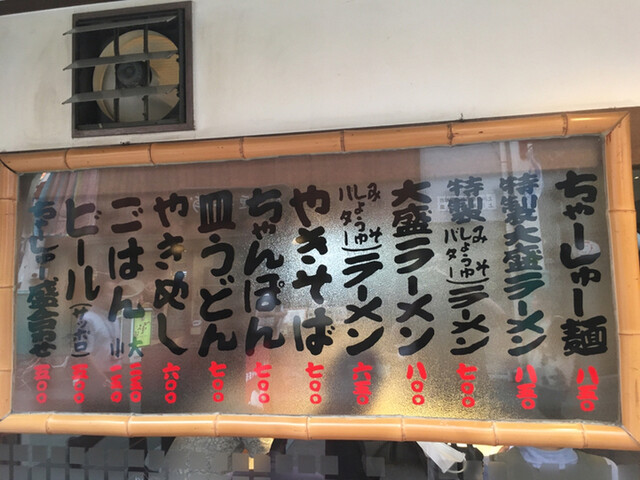 ちゃーしゅー麺 八五〇
特製大盛ラーメン 八五〇
特製(みそ しょうゆ バター)ラーメン 七〇〇
大盛ラーメン 八〇〇
(みそ しょうゆ バター)ラーメン 六五〇
やきそば 七〇〇
ちゃんぽん 七〇〇
皿うどん 七〇〇
やきめし 六〇〇
ごはん 大 二五〇 小 一五〇
ビール(サッポロ) 五〇〇
ちゃーしゅー盛合せ 五〇〇